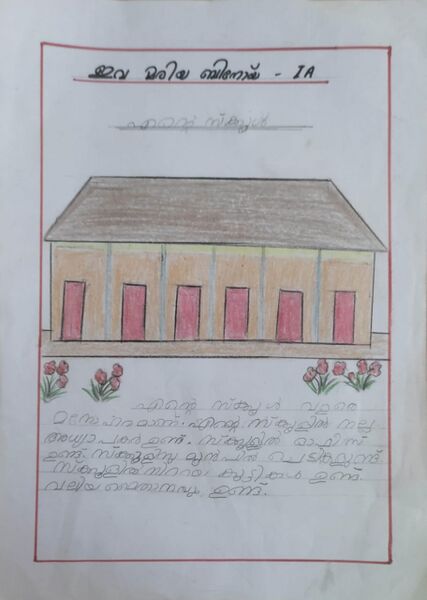 ഇവ മരിയ ബിനോയ് - IA
എന്റെ സ്കൂൾ
എന്റെ സ്കൂൾ വളരെ
മനോഹരമാണ്. എന്റെ സ്കൂളിൽ നല്ല
അധ്യാപകർ ഉണ്ട്. സ്കൂളിൽ ഓഫീസ്
ഉണ്ട്. സ്കൂളിനു മുൻപിൽ ചെടികളുണ്ട്.
സ്കൂളിൽ നിറയെ കുട്ടികൾ ഉണ്ട്.
വലിയ മൈതാനവും ഉണ്ട്.